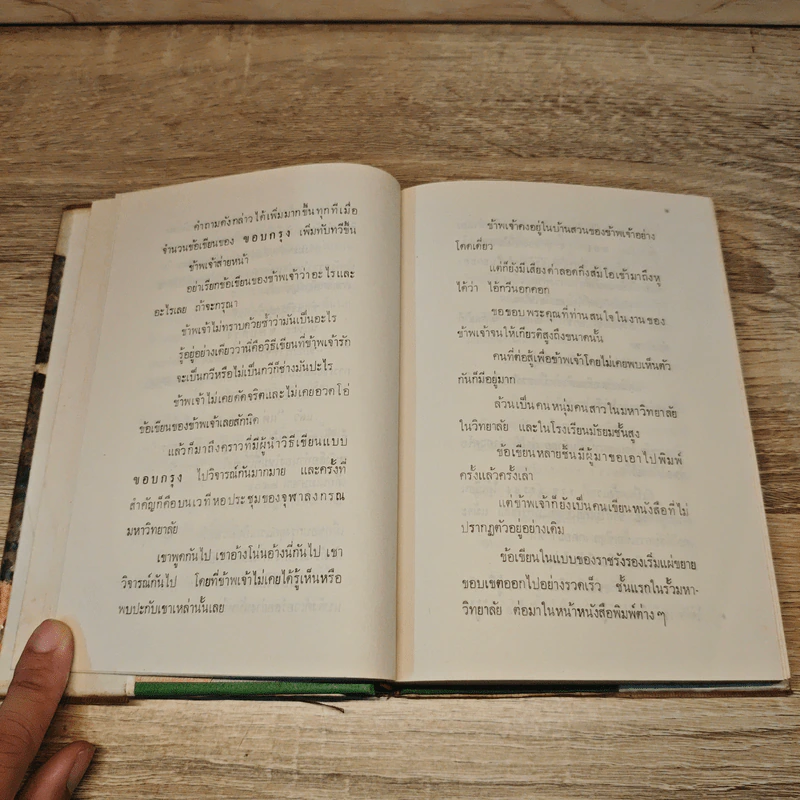 คำถามดังกล่าวได้เพิ่มมากขึ้นทุกทีเมื่อ
จำนวนข้อเขียนของ ขอบกรุง เพิ่มทับทวีขึ้น
ข้าพเจ้าส่ายหน้า
อย่าเรียกข้อเขียนของข้าพเจ้าว่าอะไรและ
อะไรเลย ถ้าจะกรุณา
ข้าพเจ้าไม่ทราบด้วยซ้ำว่ามันเป็นอะไร
รู้อยู่อย่างเดียวว่านี่คือวิธีเขียนที่ข้าพเจ้ารัก
จะเป็นกวีหรือไม่เป็นกวีก็ช่างมันปะไร
ข้าพเจ้าไม่เคยดัดจริตและไม่เคยอวดโอ่
ข้อเขียนของข้าพเจ้าเลยสักนิด
แล้วก็มาถึงคราวที่มีผู้นำวิธีเขียนแบบ
ขอบกรุง ไปวิจารณ์กันมากมาย และครั้งที่
สำคัญก็คือบนเวทีหอประชุมของจุฬาลงกรณ
มหาวิทยาลัย
เขาพูดกันไป เขาอ้างโน่นอ้างนี่กันไป เขา
วิจารณ์กันไป โดยที่ข้าพเจ้าไม่เคยได้รู้เห็นหรือ
พบปะกับเขาเหล่านั้นเลย
ข้าพเจ้าคงอยู่ในบ้านสวนของข้าพเจ้าอย่าง
โดดเดี่ยว
แต่ก็ยังมีเสียงด่าลอดกิ่งส้มโอเข้ามาถึงหู
ได้ว่า ไอ้กวีนอกคอก
ขอขอบพระคุณที่ท่านสนใจในงานของ
ข้าพเจ้าจนให้เกียรติสูงถึงขนาดนั้น
คนที่ต่อสู้เพื่อข้าพเจ้าโดยไม่เคยพบเห็นตัว
กันก็มีอยู่มาก
ล้วนเป็นคนหนุ่มคนสาวในมหาวิทยาลัย
ในวิทยาลัย และในโรงเรียนมัธยมชั้นสูง
ข้อเขียนหลายชิ้นมีผู้มาขอเอาไปพิมพ์
ครั้งแล้วครั้งเล่า
แต่ข้าพเจ้าก็ยังเป็นคนเขียนหนังสือที่ไม่
ปรากฏตัวอยู่อย่างเดิม
ข้อเขียนในแบบของราชรังรองเริ่มแผ่ขยาย
ขอบเขตออกไปอย่างรวดเร็ว ชั้นแรกในรั้วมหา-
วิทยาลัย ต่อมาในหน้าหนังสือพิมพ์ต่าง ๆ